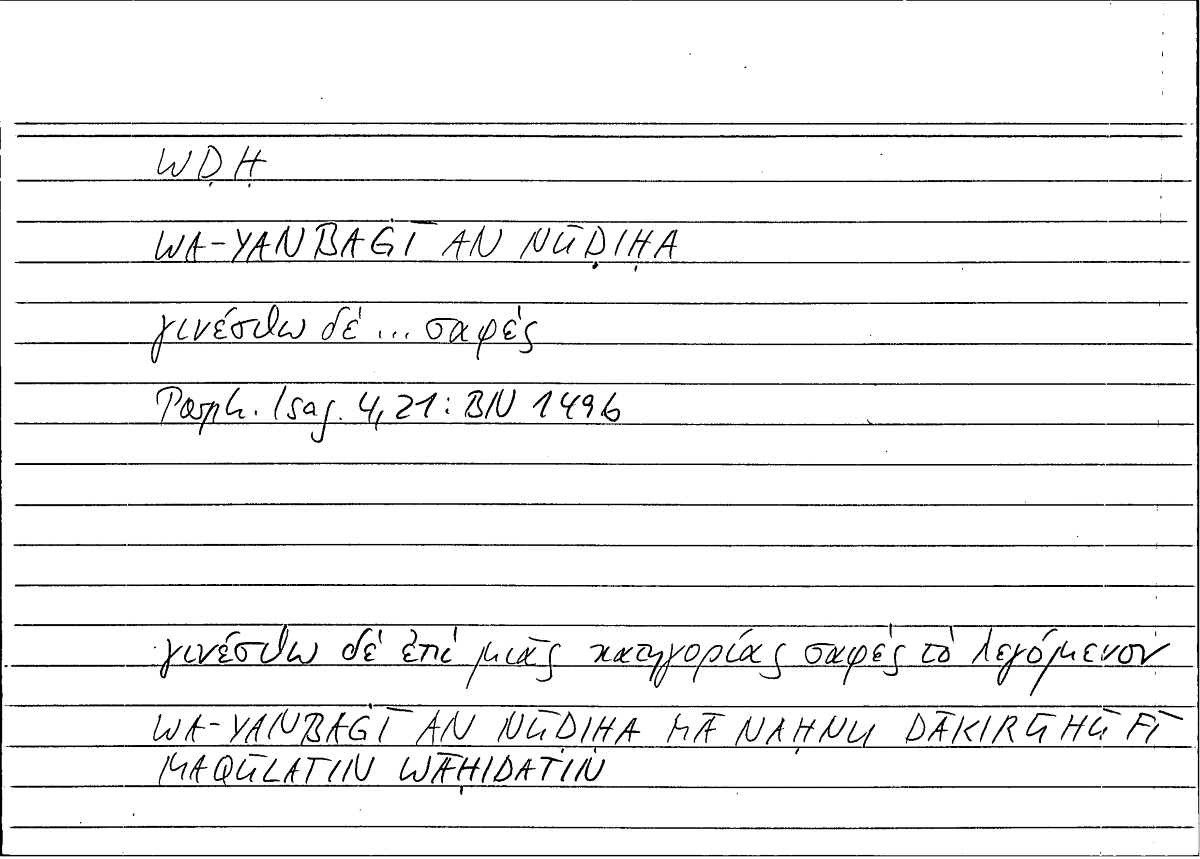 WḌḤ
WA-YANBAĠĪ AN NŪḌIḤA
γινέσθω δέ ... σαφές
Porph. Isag. 4,21: BN 149b
γινέσθω δέ ἐπί μιᾶς κατηγορίας σαφές τὸ λεγόμενον
WA-YANBAĠĪ AN NŪḌIḤA MĀ NAḤNU ḎĀKIRŪHŪ FĪ
MAQŪLATIN WĀḤIDATIN